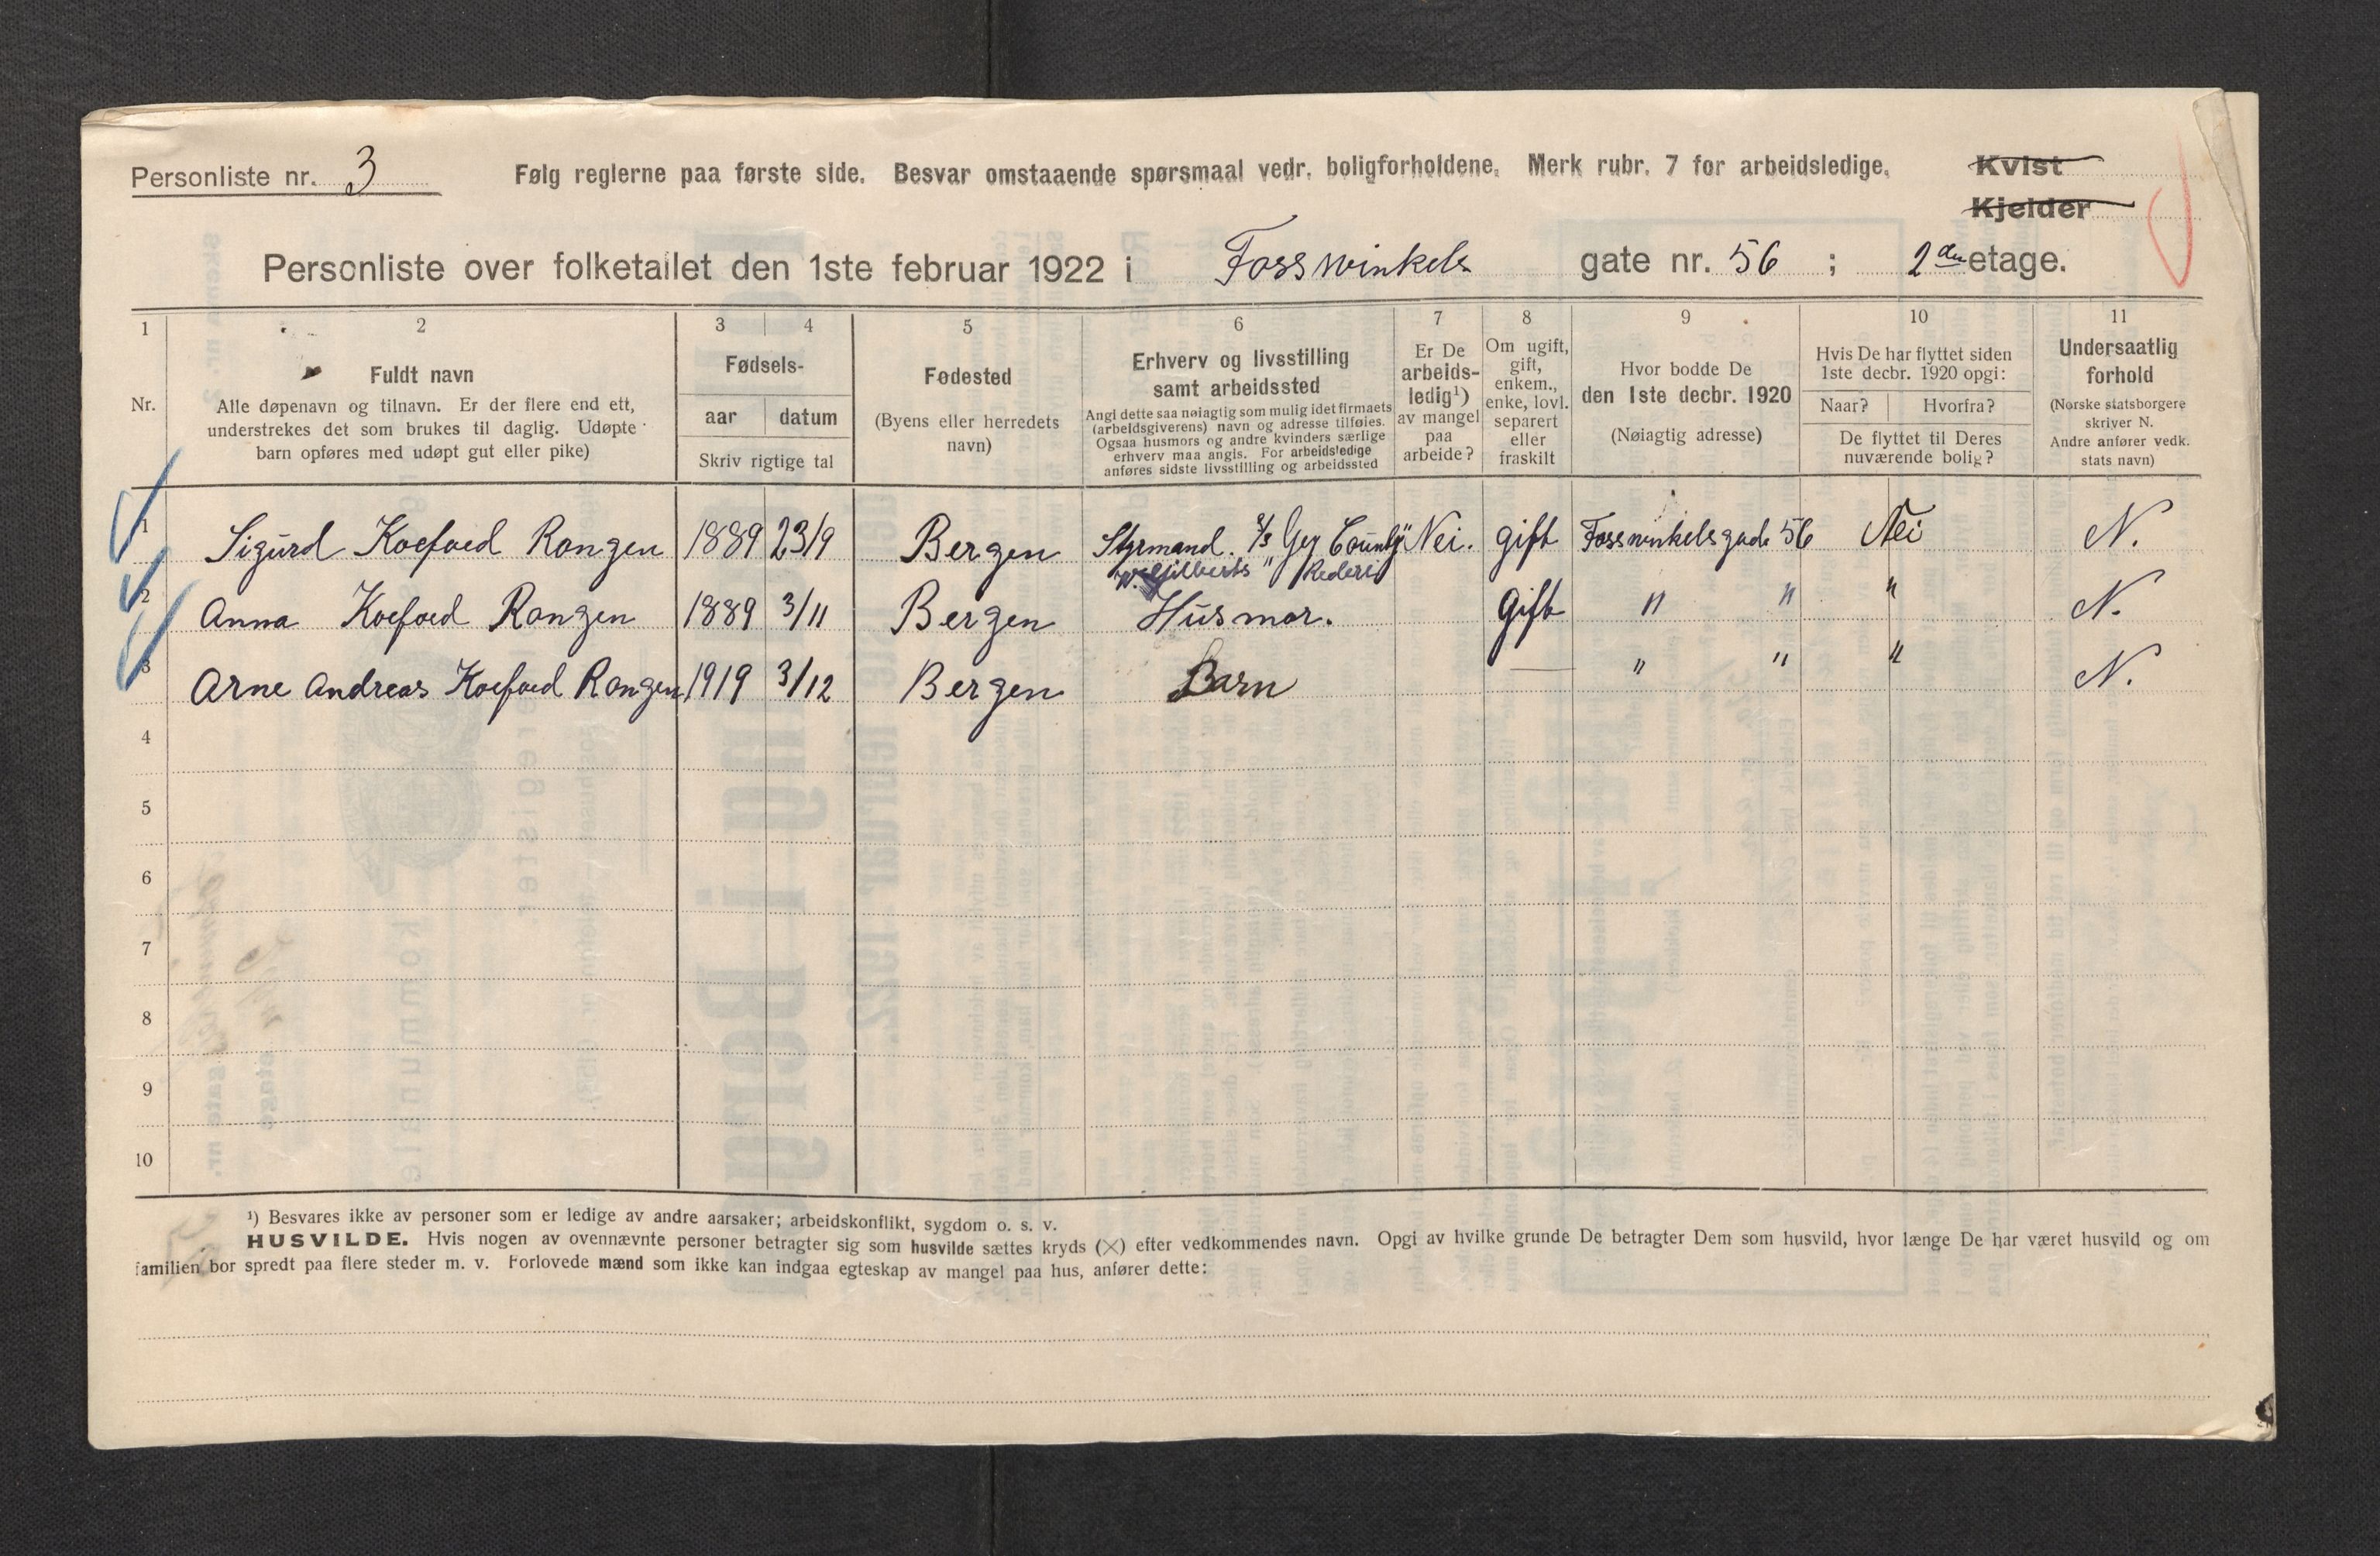 Personliste nr. 3 Følg reglerne paa første side. Besvar omstaaende spørsmaal vedr. boligforholdene. Merk rubr. 7 for arbeidsledige. Kvist
Kjelder
Personliste over folketallet den 1ste februar 1922 i Fosswinkels gate nr. 56 ; 2den etage.
1 2 3 4 5 6 7 8 9 10 11
Nr.
Fuldt navn
Alle døpenavn og tilnavn. Er der flere end ett,
understrekes det som brukes til daglig. Udøpte
barn opføres med udøpt gut eller pike)
Fødsels-
aar datum
Skriv rigtige tal
Fødested
(Byens eller herredets
navn)
Erhverv og livsstilling
samt arbeidssted
Angi dette saa nøiagtig som mulig idet firmaets
(arbeidsgiverens) navn og adresse tilføies.
Ogsaa husmors og andre kvinders særlige
erhverv maa angis. For arbeidsledige
anføres sidste livsstilling og arbeidssted
Er De
arbeids-
ledig¹)
av mangel
paa
arbeide?
Om ugift,
gift,
enkem.,
enke, lovl.
separert
eller
fraskilt
Hvor bodde De
den 1ste decbr. 1920
(Nøiagtig adresse)
Hvis De har flyttet siden
1ste decbr. 1920 opgi:
Naar? Hvorfra?
De flyttet til Deres
nuværende bolig?
Undersaatlig
forhold
(Norske statsborgere
skriver N.
Andre anfører vedk.
stats navn)
1 Sigurd Koefoed Rongen 1889 23/9 Bergen Styrmand. S/S Gey County Nei. gift Fosswinkelsgade 56 Nei N.
Gilberts Rederi
2 Anna Koefoed Rongen 1889 3/11 Bergen Husmor. Gift " " " N.
3 Arne Andreas Koefoed Rongen 1919 3/12 Bergen Barn — " " " N.
4
5
6
7
8
9
10
¹) Besvares ikke av personer som er ledige av andre aarsaker; arbeidskonflikt, sygdom o. s. v.
HUSVILDE. Hvis nogen av ovennævnte personer betragter sig som husvilde sættes kryds (×) efter vedkommendes navn. Opgi av hvilke grunde De betragter Dem som husvild, hvor længe De har været husvild og om
familien bor spredt paa flere steder m. v. Forlovede mænd som ikke kan indgaa egteskap av mangel paa hus, anfører dette: